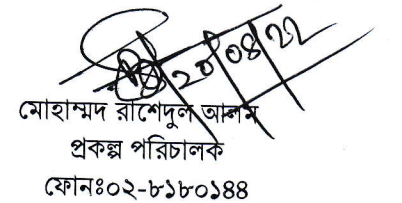 20/04/22
মোহাম্মদ রাশেদুল আলম
প্রকল্প পরিচালক
ফোনঃ০২-৮১৮০১৪৪